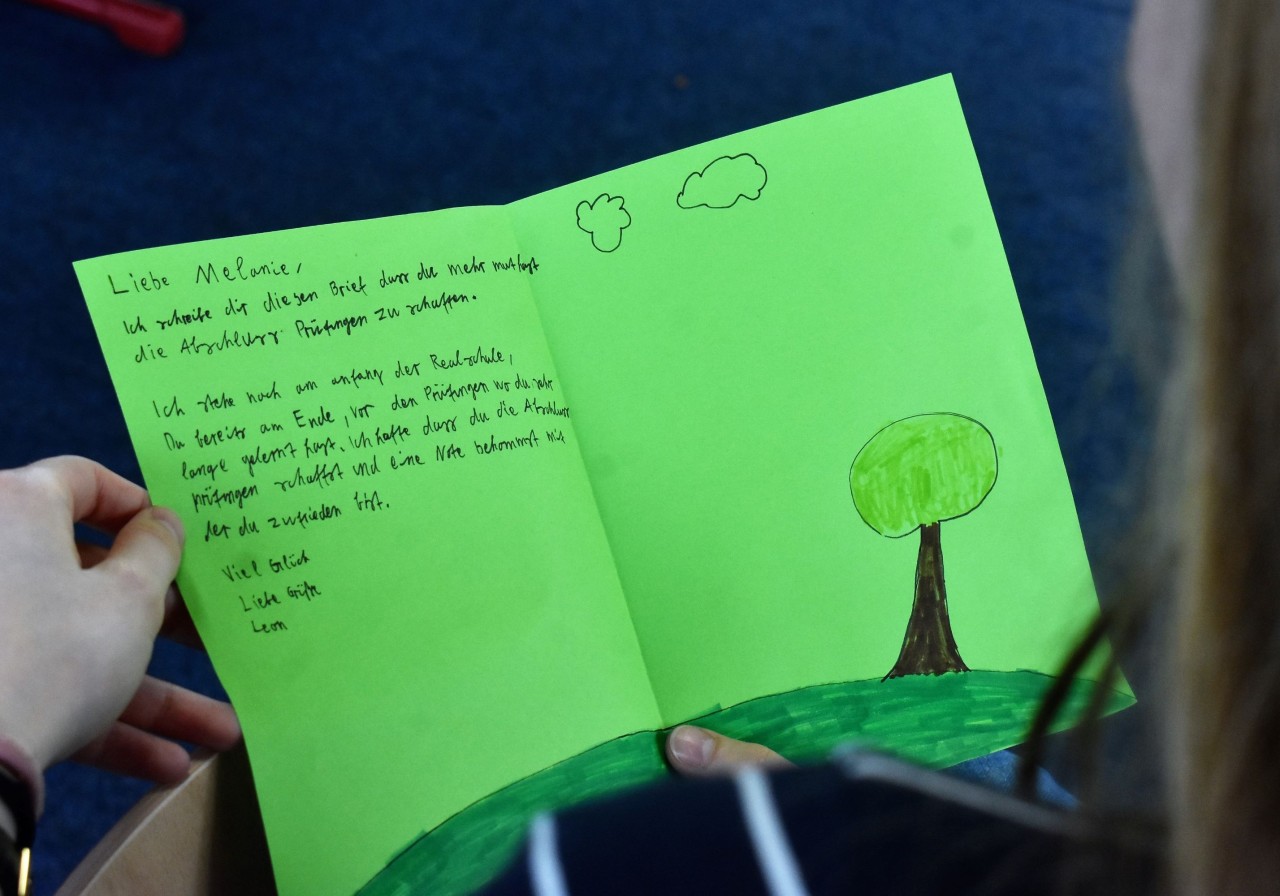 Liebe Melanie,
Ich schreibe dir diesen Brief dass du mehr mut hast
die Abschluss Prüfungen zu schaffen.
Ich stehe noch am anfang der Realschule,
Du bereits am Ende, vor den Prüfungen wo du sehr
lange gelernt hast. Ich hoffe dass du die Abschluss
prüfungen schaffst und eine Note bekommst mit
der du zufrieden bist.
Viel Glück
Liebe Grüße
Leon